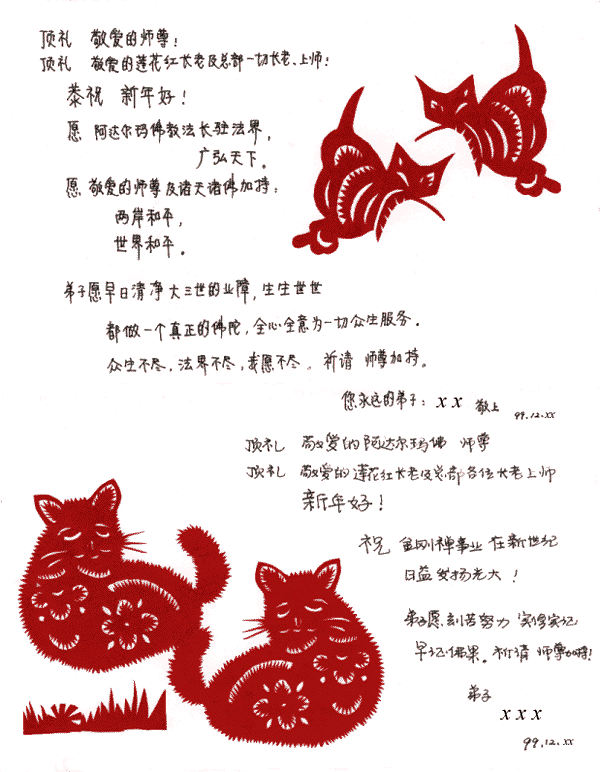 顶礼 敬爱的师尊:
顶礼 敬爱的莲花红长老及总部一切长老、上师:
恭祝 新年好!
愿 阿达尔玛佛教法长驻法界,
广弘天下。
愿 敬爱的师尊及诸天诸佛加持:
两岸和平,
世界和平。
弟子愿早日清净大三世的业障,生生世世
都做一个真正的佛陀,全心全意为一切众生服务。
众生不尽,法界不尽,我愿不尽。祈请 师尊加持。
您永远的弟子: x x 敬上
99.12.xx
顶礼 敬爱的阿达尔玛佛 师尊
顶礼 敬爱的莲花红长老及总部各位长老上师
新年好!
祝 金刚禅事业 在新世纪
日益发扬光大!
弟子愿刻苦努力 实修实证
早证佛果。祈请 师尊加持!
弟子
x x x
99.12.xx